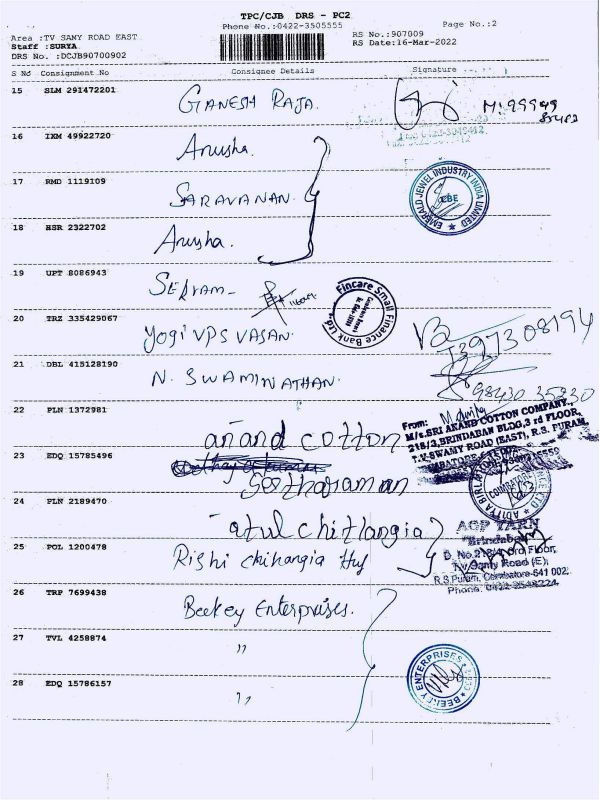 TPC/CJB DRS - PC2
Phone No.:0422-3505555
Page No.:2
Area :TV SAMY ROAD EAST
Staff :SURYA
DRS No. :DCJB90700902
RS No.:907009
RS Date:16-Mar-2022
S No Consignment No Consignee Details Signature
15 SLM 291472201 GANESH RAJA.
16 IXM 49922720 Anusha.
17 RMD 1119109 SARAVANAN.
EMERALD JEWEL INDUSTRY INDIA LIMITED
CBE
18 HSR 2322702 Anusha.
19 UPT 8086943
Fincare Small Finance Bank Ltd.
20 TRZ 335429067 yogi VPS VASAN.
21 DBL 415128190 N. SWAMINATHAN.
98430 35230
22 PLN 1372981 anand cotton
From:
M/s.SRI ANAND COTTON COMPANY,
218/3,BRINDABAN BLDG,3 rd FLOOR,
T.V-SWAMY ROAD (EAST), R.S. PURAM,
23 EDQ 15785496 seetharaman
24 PLN 2189470 atul chitlangia
AGP YARN
Brindaban
D. No.218/4, 3rd Floor,
T.v. Samy Road (E),
R.S Puram, Coimbatore-641 002.
Phone: 0422-2548224
25 POL 1200478 Rishi chitlangia Huf
26 TRP 7699438 Beekey Enterprises.
27 TVL 4258874 "
BEEKEY ENTERPRISES
28 EDQ 15786157 "